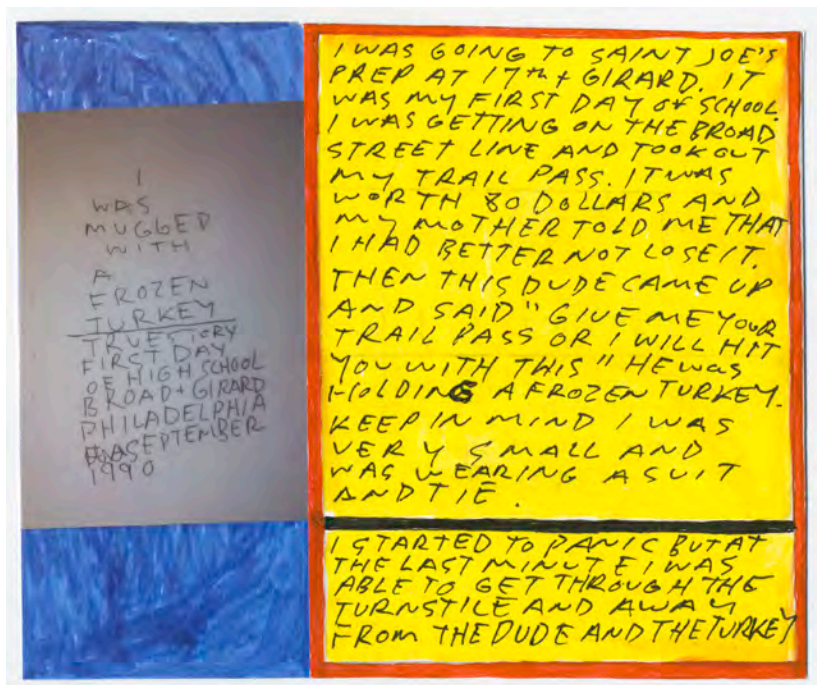 I
WAS
MUGGED
WITH
A
FROZEN
TURKEY
TRUE STORY
FIRST DAY
OF HIGH SCHOOL
BROAD + GIRARD
PHILADELPHIA
SEPTEMBER
1990
I WAS GOING TO SAINT JOE'S
PREP AT 17th + GIRARD. IT
WAS MY FIRST DAY OF SCHOOL.
I WAS GETTING ON THE BROAD
STREET LINE AND TOOK OUT
MY TRAIL PASS. IT WAS
WORTH 80 DOLLARS AND
MY MOTHER TOLD ME THAT
I HAD BETTER NOT LOSE IT.
THEN THIS DUDE CAME UP
AND SAID "GIVE ME YOUR
TRAIL PASS OR I WILL HIT
YOU WITH THIS" HE WAS
HOLDING A FROZEN TURKEY.
KEEP IN MIND I WAS
VERY SMALL AND
WAS WEARING A SUIT
AND TIE.
I STARTED TO PANIC BUT AT
THE LAST MINUTE I WAS
ABLE TO GET THROUGH THE
TURNSTILE AND AWAY
FROM THE DUDE AND THE TURKEY